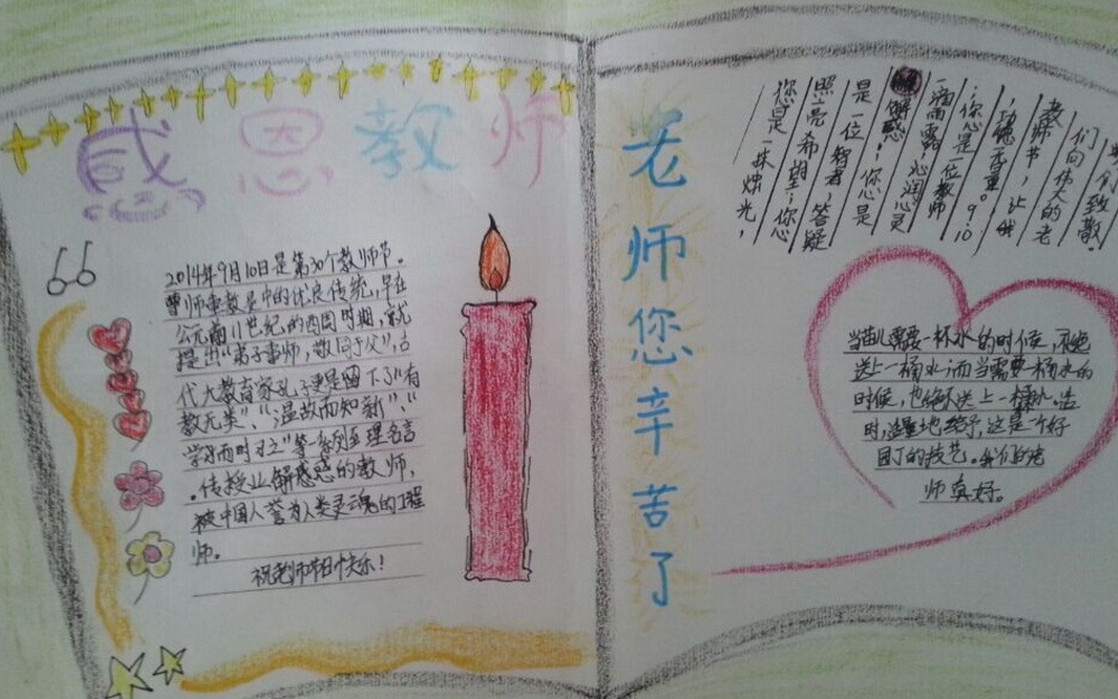 感恩教师
2014年9月10日是第30个教师节。
尊师重教是中的优良传统,早在
公元前11世纪的西周时期,就
提出"弟子事师,敬同于父",古
代大教育家孔子更是留下了"有
教无类"、"温故而知新"、"
学习而时习之"等一系列至理名言
。传授业解惑惑的教师,
被中国人誉为人类灵魂的工程
师。
祝老师节日快乐!
老师您辛苦了
您是一抹烛光,
照亮希望;您
是一位智者,答疑
解惑!您是
一滴雨露,沁润心灵
。您是一位教师
,功德千重。9.10
教师节,让我
们向伟大的老
致敬.
当苗儿需要一杯水的时候,不绝
送上一桶水;而当需要一桶水的
时候,也绝不送上一杯水。适
时,适量地给予,这是一个好
园丁的技艺。我们的老
师真好。